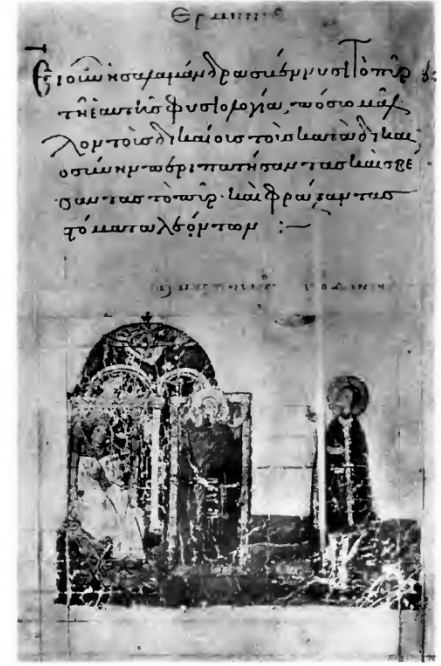 Ερμηνεία
Εἰ οὖν ἡ σαλαμάνδρα σβέννυσι τὸ πῦρ
τῆ ἑαυτῆς φυσιολογία, πόσω μᾶλ
λον τοῖς δικαίοις τοῖς κατὰ δικαι
οσύνην περιπατήσαντας καὶ σβε
σαντας τὸ πῦρ· καὶ φράξαντας
στόματα λεόντων :—